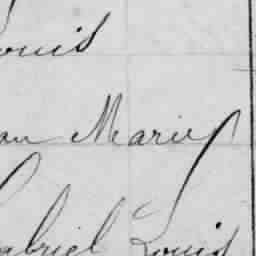 ouis
an Marie
abriel Louis